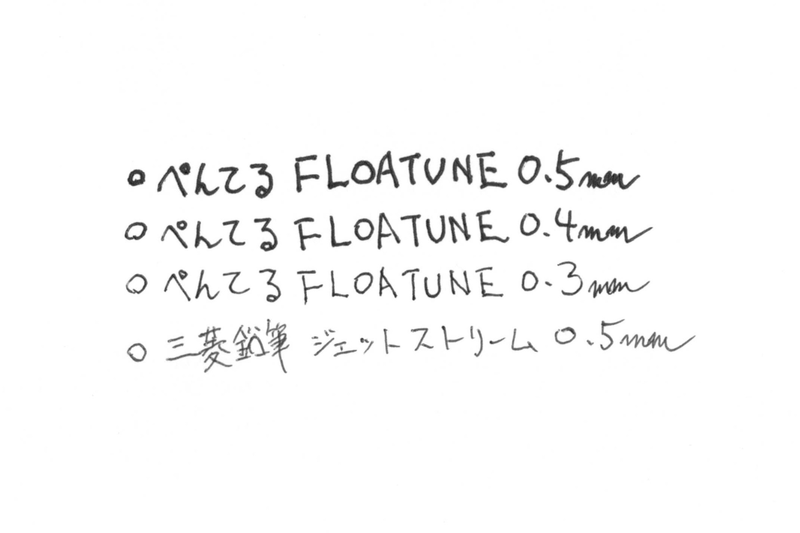 ○ ぺんてる FLOATUNE 0.5mm
○ ぺんてる FLOATUNE 0.4mm
○ ぺんてる FLOATUNE 0.3mm
○ 三菱鉛筆 ジェットストリーム 0.5mm